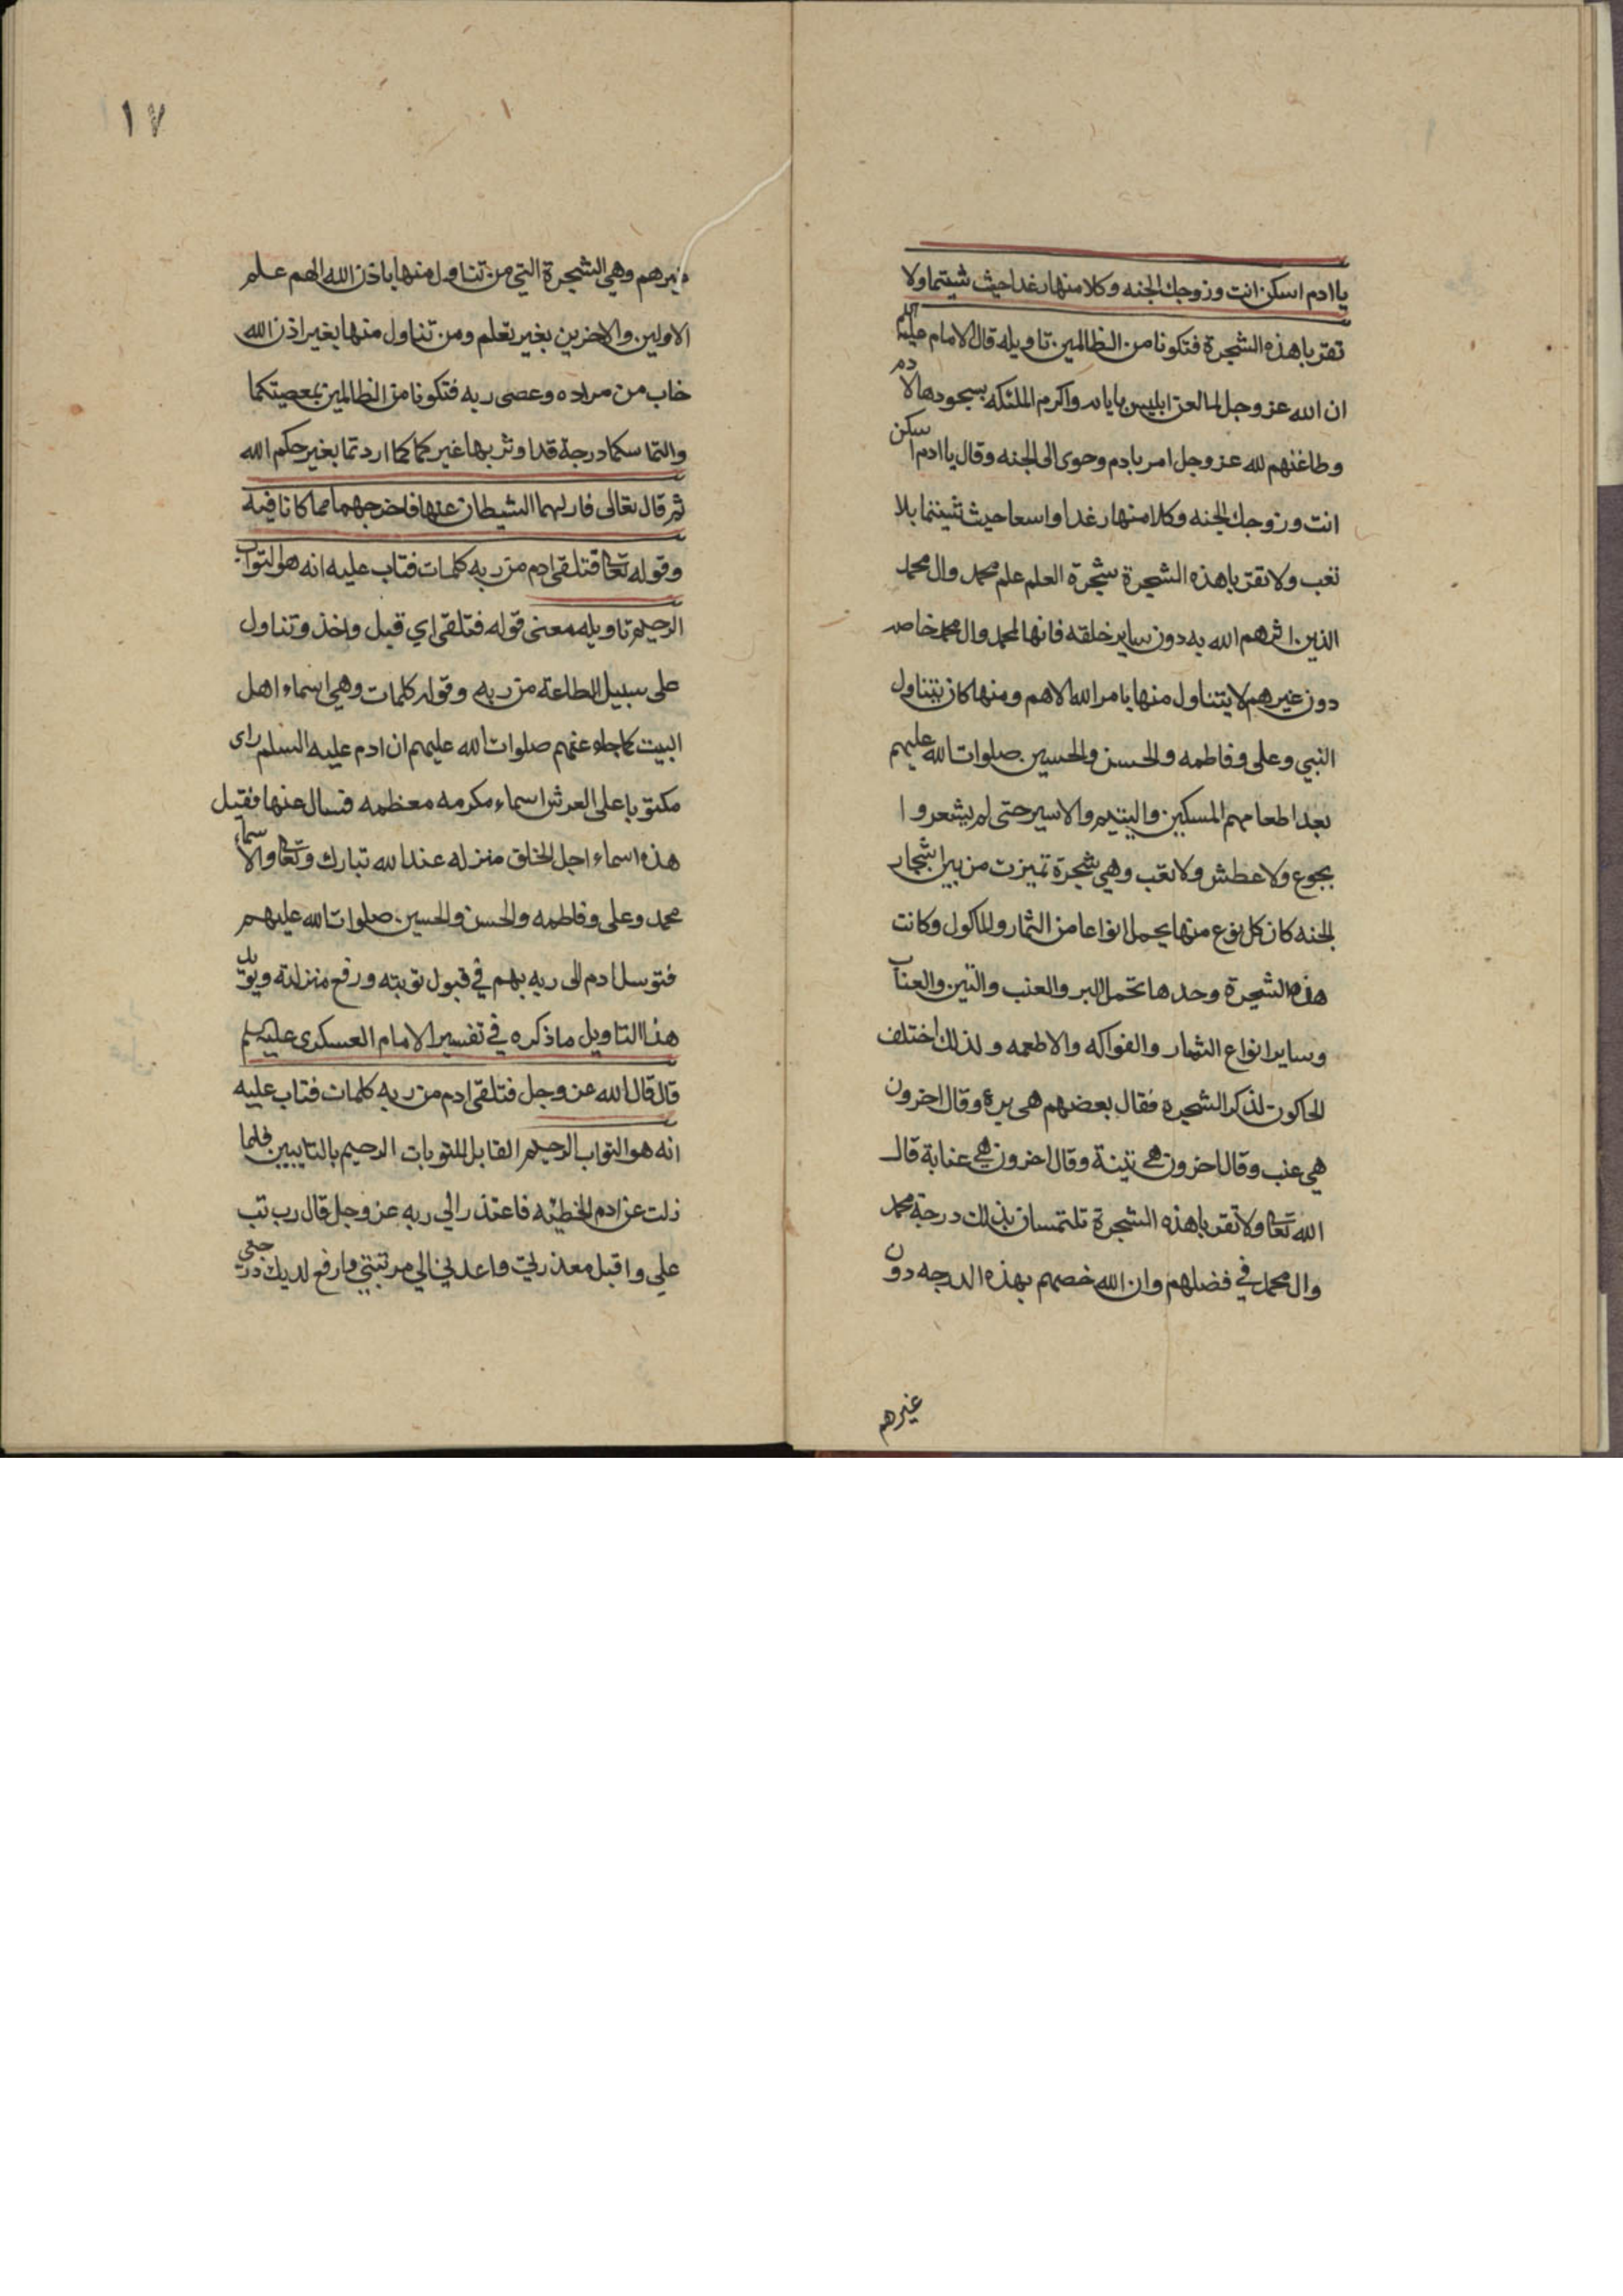 يا ادم اسكن انت وزوجك الجنه وكلا منها رغدا حيث شيتما ولا
تقربا هذه الشجرة فتكونا من الظالمين تاويله قال الامام عليه السلم
ان الله عز وجل لما لعن ابليس بابايه واكرم الملئكه بسجودها لادم
وطاعتهم لله عز وجل امر بادم وحوى الى الجنه وقال يا ادم اسكن
انت وزوجك الجنه وكلا منها رغدا واسعا حيث شيتما بلا
تعب ولا تقربا هذه الشجرة شجرة العلم علم محمد وال محمد
الذين اثرهم الله به دون ساير خلقه فانها لمحمد وال محمد خاصه
دون غيرهم لا يتناول منها بامر الله الا هم ومنها كان يتناول
النبي وعلى وفاطمه والحسن والحسين صلوات الله عليهم
بعد اطعامهم المسكين واليتيم والاسير حتى لم يشعروا
بجوع ولا عطش ولا تعب وهي شجرة تميزت من بين اشجار
الجنه كان كل نوع منها يحمل انواعا من الثمار والماكول وكانت
هذه الشجرة وحدها تحمل البر والعنب والتين والعناب
وساير انواع الثمار والفواكه والاطعمه ولذلك اختلف
الحاكون لذكر الشجرة فقال بعضهم هي برة وقال اخرون
هي عنب وقال اخرون هي تينة وقال اخرون هي عنابة قال
الله تعالى ولا تقربا هذه الشجرة تلتمسان بذلك درجة محمد
وال محمد في فضلهم وان الله خصهم بهذه الدرجه دون
غيرهم
١٧
غيرهم وهي الشجرة التي من تناول منها باذن الله الهم علم
الاولين والاخرين بغير تعلم ومن تناول منها بغير اذن الله
خاب من مراده وعصى ربه فتكونا من الظالمين بمعصيتكما
والتماسكما درجة قد اوثر بها غيركما كما اردتما بغير حكم الله
ثم قال تعالى فازلهما الشيطان عنها فاخرجهما مما كانا فيه
وقوله تعالى فتلقى ادم من ربه كلمات فتاب عليه انه هو التواب
الرحيم تاويله معنى قوله فتلقى اي قبل واخذ وتناول
على سبيل الطاعة من ربه وقوله كلمات وهي اسماء اهل
البيت كما جاء عنهم صلوات الله عليهم ان ادم عليه السلم راى
مكتوبا على العرش اسماء مكرمه معظمه فسال عنها فقيل
هذه اسماء اجل الخلق منزله عند الله تبارك وتعالى والاسماء
محمد وعلى وفاطمه والحسن والحسين صلوات الله عليهم
فتوسل ادم الى ربه بهم في قبول توبته ورفع منزلته ويويد
هذا التاويل ما ذكره في تفسير الامام العسكرى عليه السلم
قال قال الله عز وجل فتلقى ادم من ربه كلمات فتاب عليه
انه هو التواب الرحيم القابل للتوبات الرحيم بالتايبين فلما
زلت عن ادم الخطيئه فاعتذر الي ربه عز وجل قال رب تب
علي واقبل معذرتي واعدني الي مرتبتي وارفع لديك درجتي